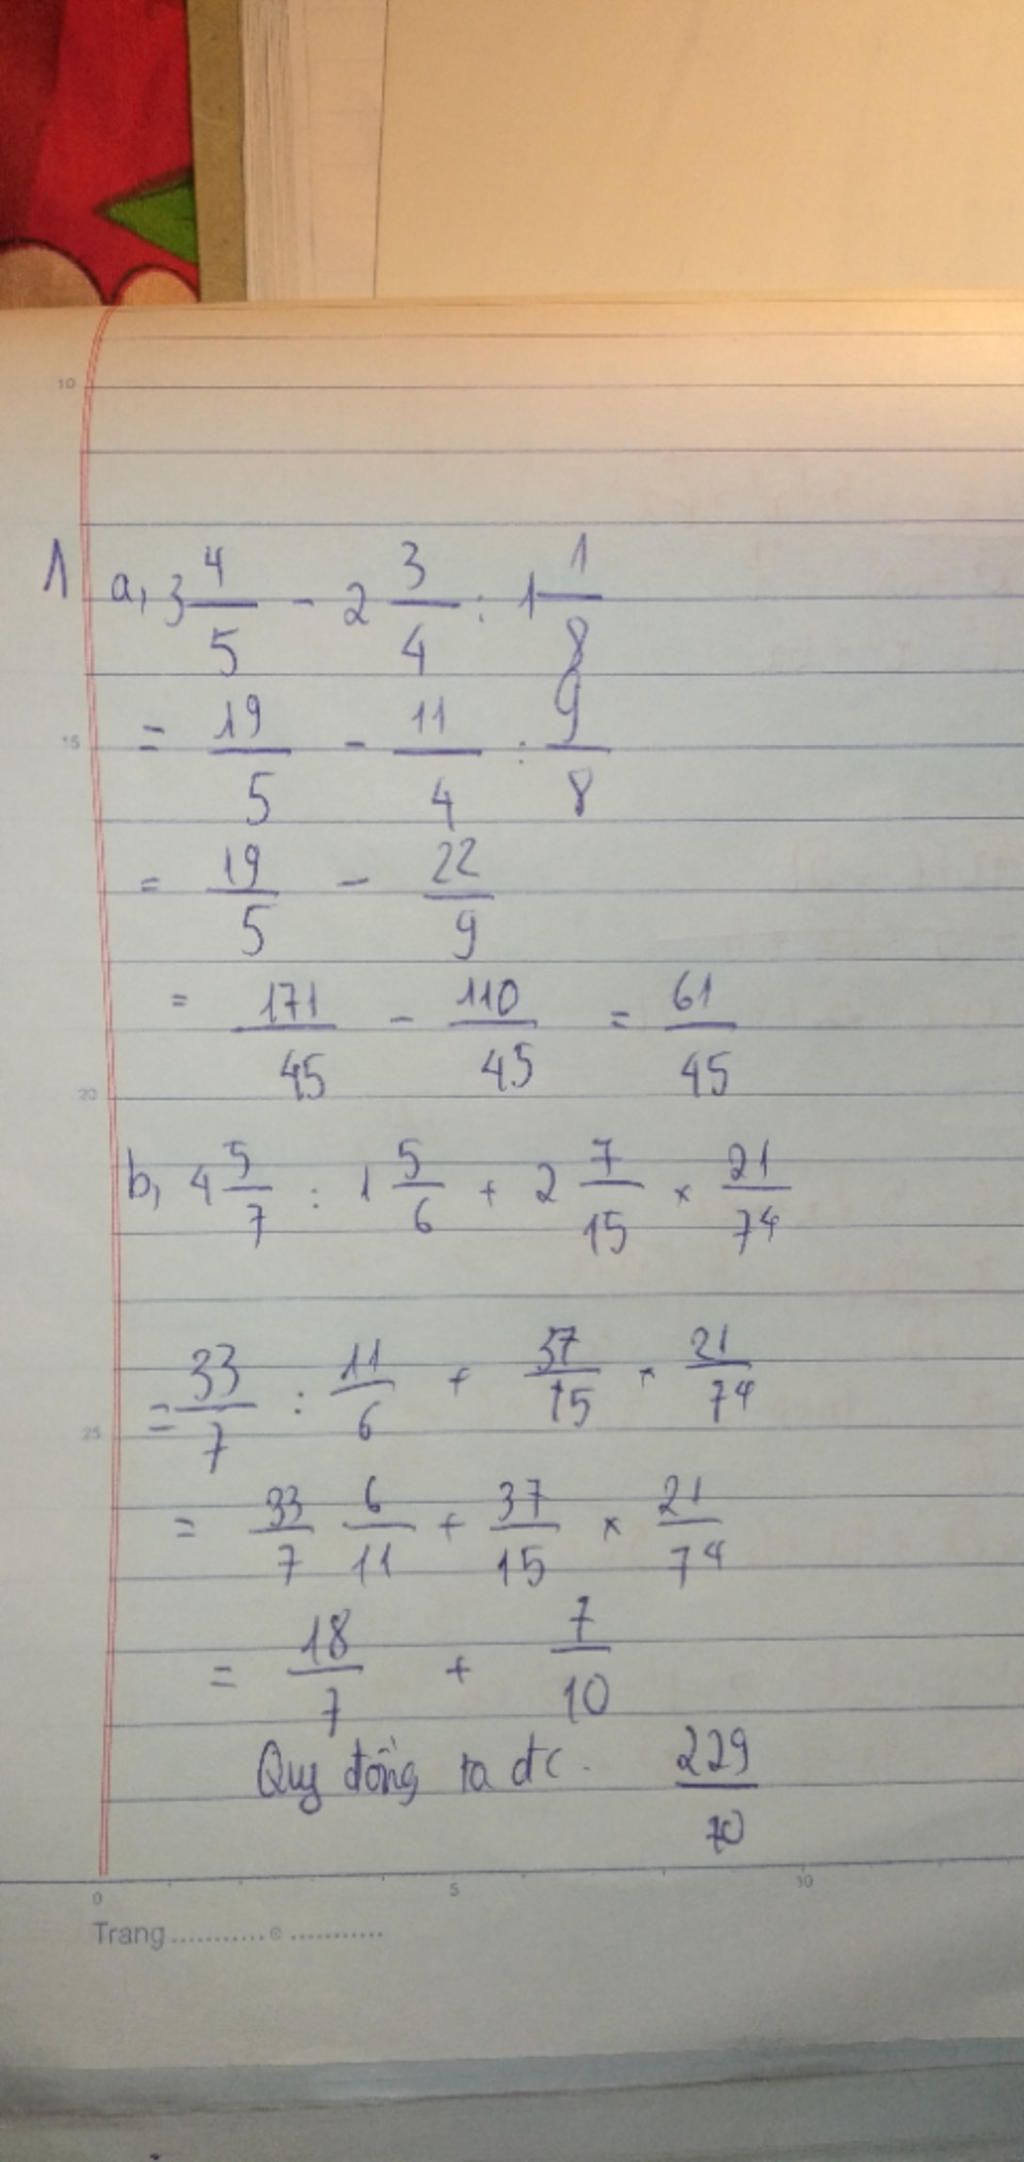 10
1 a, 3 4/5 - 2 3/4 : 1 1/8
15
= 19/5 - 11/4 : 9/8
= 19/5 - 22/9
= 171/45 - 110/45 = 61/45
20
b, 4 5/7 : 1 5/6 + 2 7/15 × 21/74
= 33/7 : 11/6 + 37/15 × 21/74
25
= 33/7 6/11 + 37/15 × 21/74
= 18/7 + 7/10
Quy đồng ta đc. 229/70
0 5 10
Trang